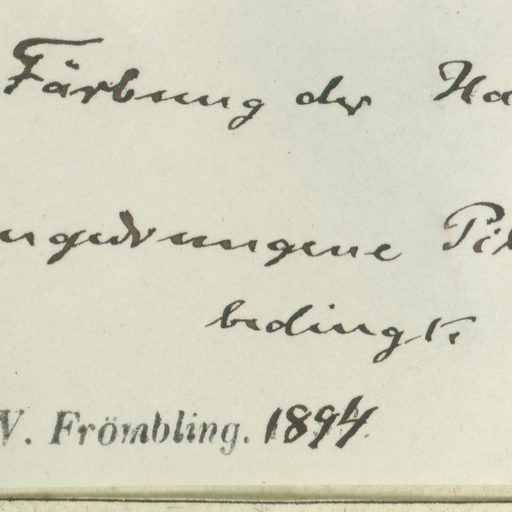 Färbung der Ha
ngedrungene Pil
bedingt.
W. Frömbling. 1894.